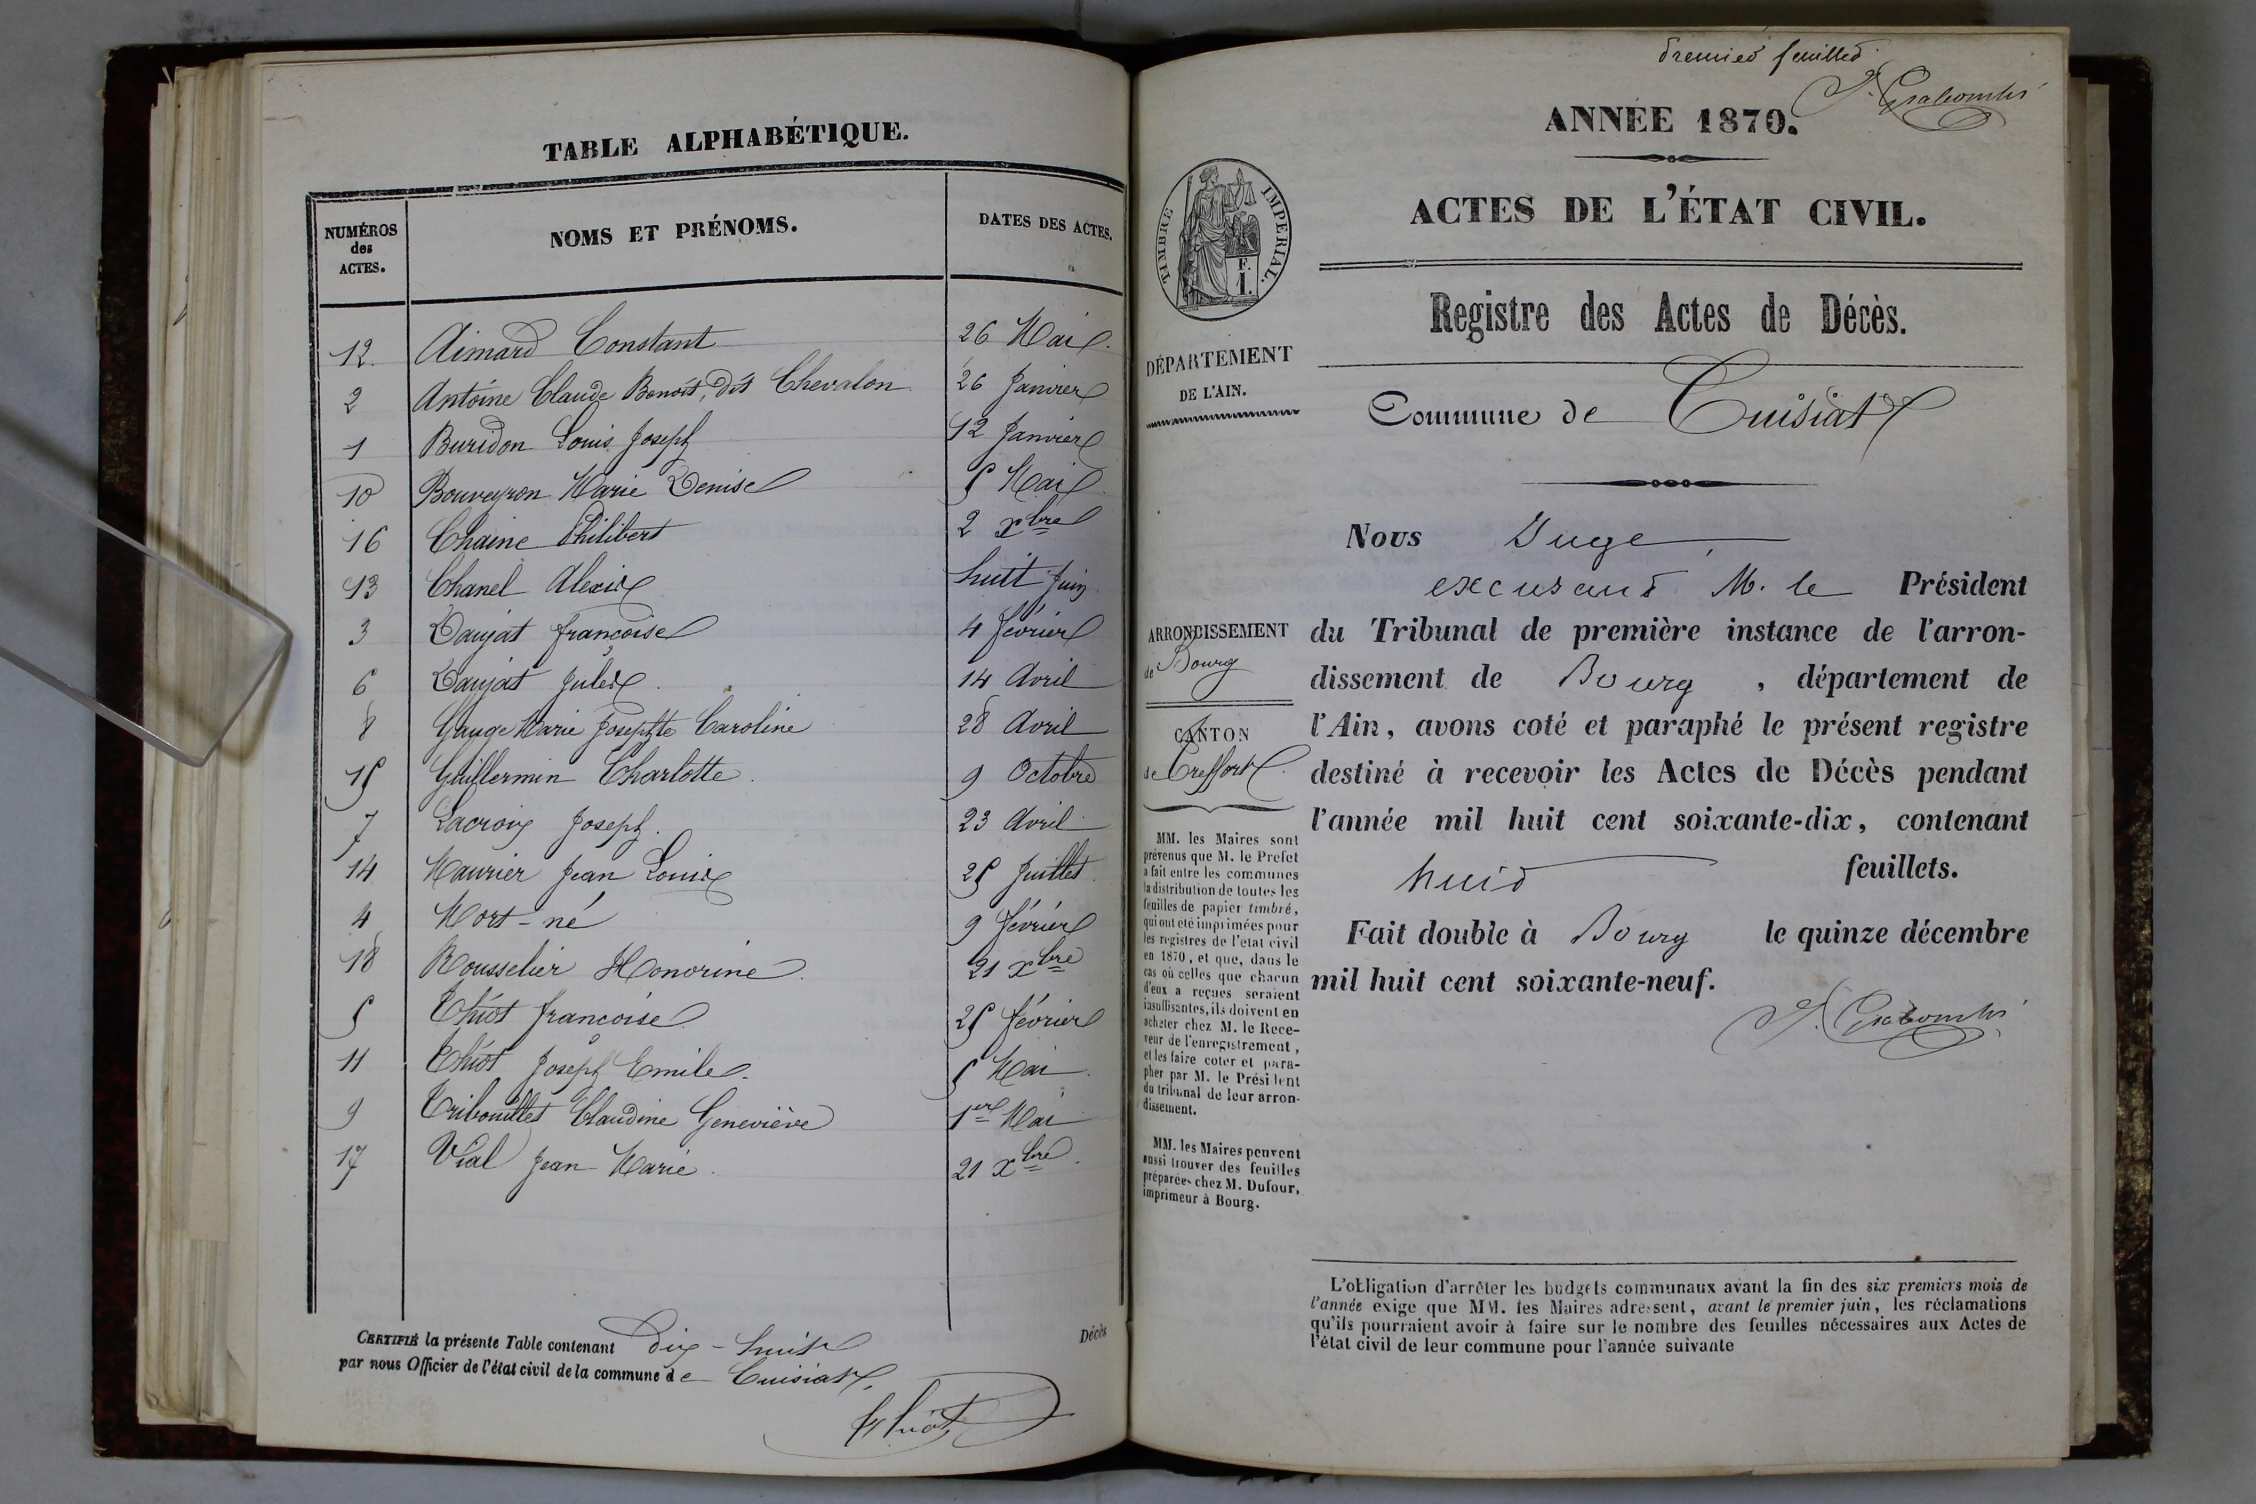 TABLE ALPHABÉTIQUE.
NUMÉROS des ACTES. NOMS ET PRÉNOMS. DATES DES ACTES.
12 Aimard Constant 26 Mai
2 Antoine Claude Benoit, dit Chevalon 26 Janvier
1 Buridon Louis Joseph 12 Janvier
10 Bouveyron Marie Denise 5 Mai
16 Chaine Philibert 2 Xbre
13 Chanel Alexis huit Juin
3 Daujat françoise 4 février
6 Daujat Jules 14 Avril
8 Gauge Marie Josephte Caroline 28 Avril
15 Guillermin Charlotte 9 Octobre
7 Lacroix Joseph 23 Avril
14 Maurier Jean Louis 25 Juillet
4 Mort-né 9 février
18 Rousselier Honorine 21 Xbre
5 Thiot françoise 25 février
11 Thiot Joseph Emile 5 Mai
9 Tribouillet Claudine Geneviève 1er Mai
17 Vial Jean Marie 21 Xbre
CERTIFIÉ la présente Table contenant dix-huit Décès
par nous Officier de l'état civil de la commune de Cuisiat.
Thiot
premier feuillet
ANNÉE 1870.
ACTES DE L'ÉTAT CIVIL.
TIMBRE IMPERIAL.
F.
1.
Registre des Actes de Décès.
DÉPARTEMENT
DE L'AIN.
Commune de Cuisiat
Nous Juge
excusant M. le Président
ARRONDISSEMENT
de Bourg
du Tribunal de première instance de l'arron-
dissement de Bourg, département de
l'Ain, avons coté et paraphé le présent registre
destiné à recevoir les Actes de Décès pendant
l'année mil huit cent soixante-dix, contenant
huit feuillets.
Fait double à Bourg le quinze décembre
mil huit cent soixante-neuf.
CANTON
de Treffort
MM. les Maires sont
prévenus que M. le Prefet
a fait entre les communes
la distribution de toutes les
feuilles de papier timbré,
qui ont été imprimées pour
les registres de l'état civil
en 1870, et que, dans le
cas où celles que chacun
d'eux a reçues seraient
insuffisantes, ils doivent en
acheter chez M. le Rece-
veur de l'enregistrement,
et les faire coter et para-
pher par M. le Président
du tribunal de leur arron-
dissement.
MM. les Maires peuvent
aussi trouver des feuilles
préparées chez M. Dufour,
imprimeur à Bourg.
L'obligation d'arrêter les budgets communaux avant la fin des six premiers mois de
l'année exige que MM. les Maires adressent, avant le premier juin, les réclamations
qu'ils pourraient avoir à faire sur le nombre des feuilles nécessaires aux Actes de
l'état civil de leur commune pour l'année suivante